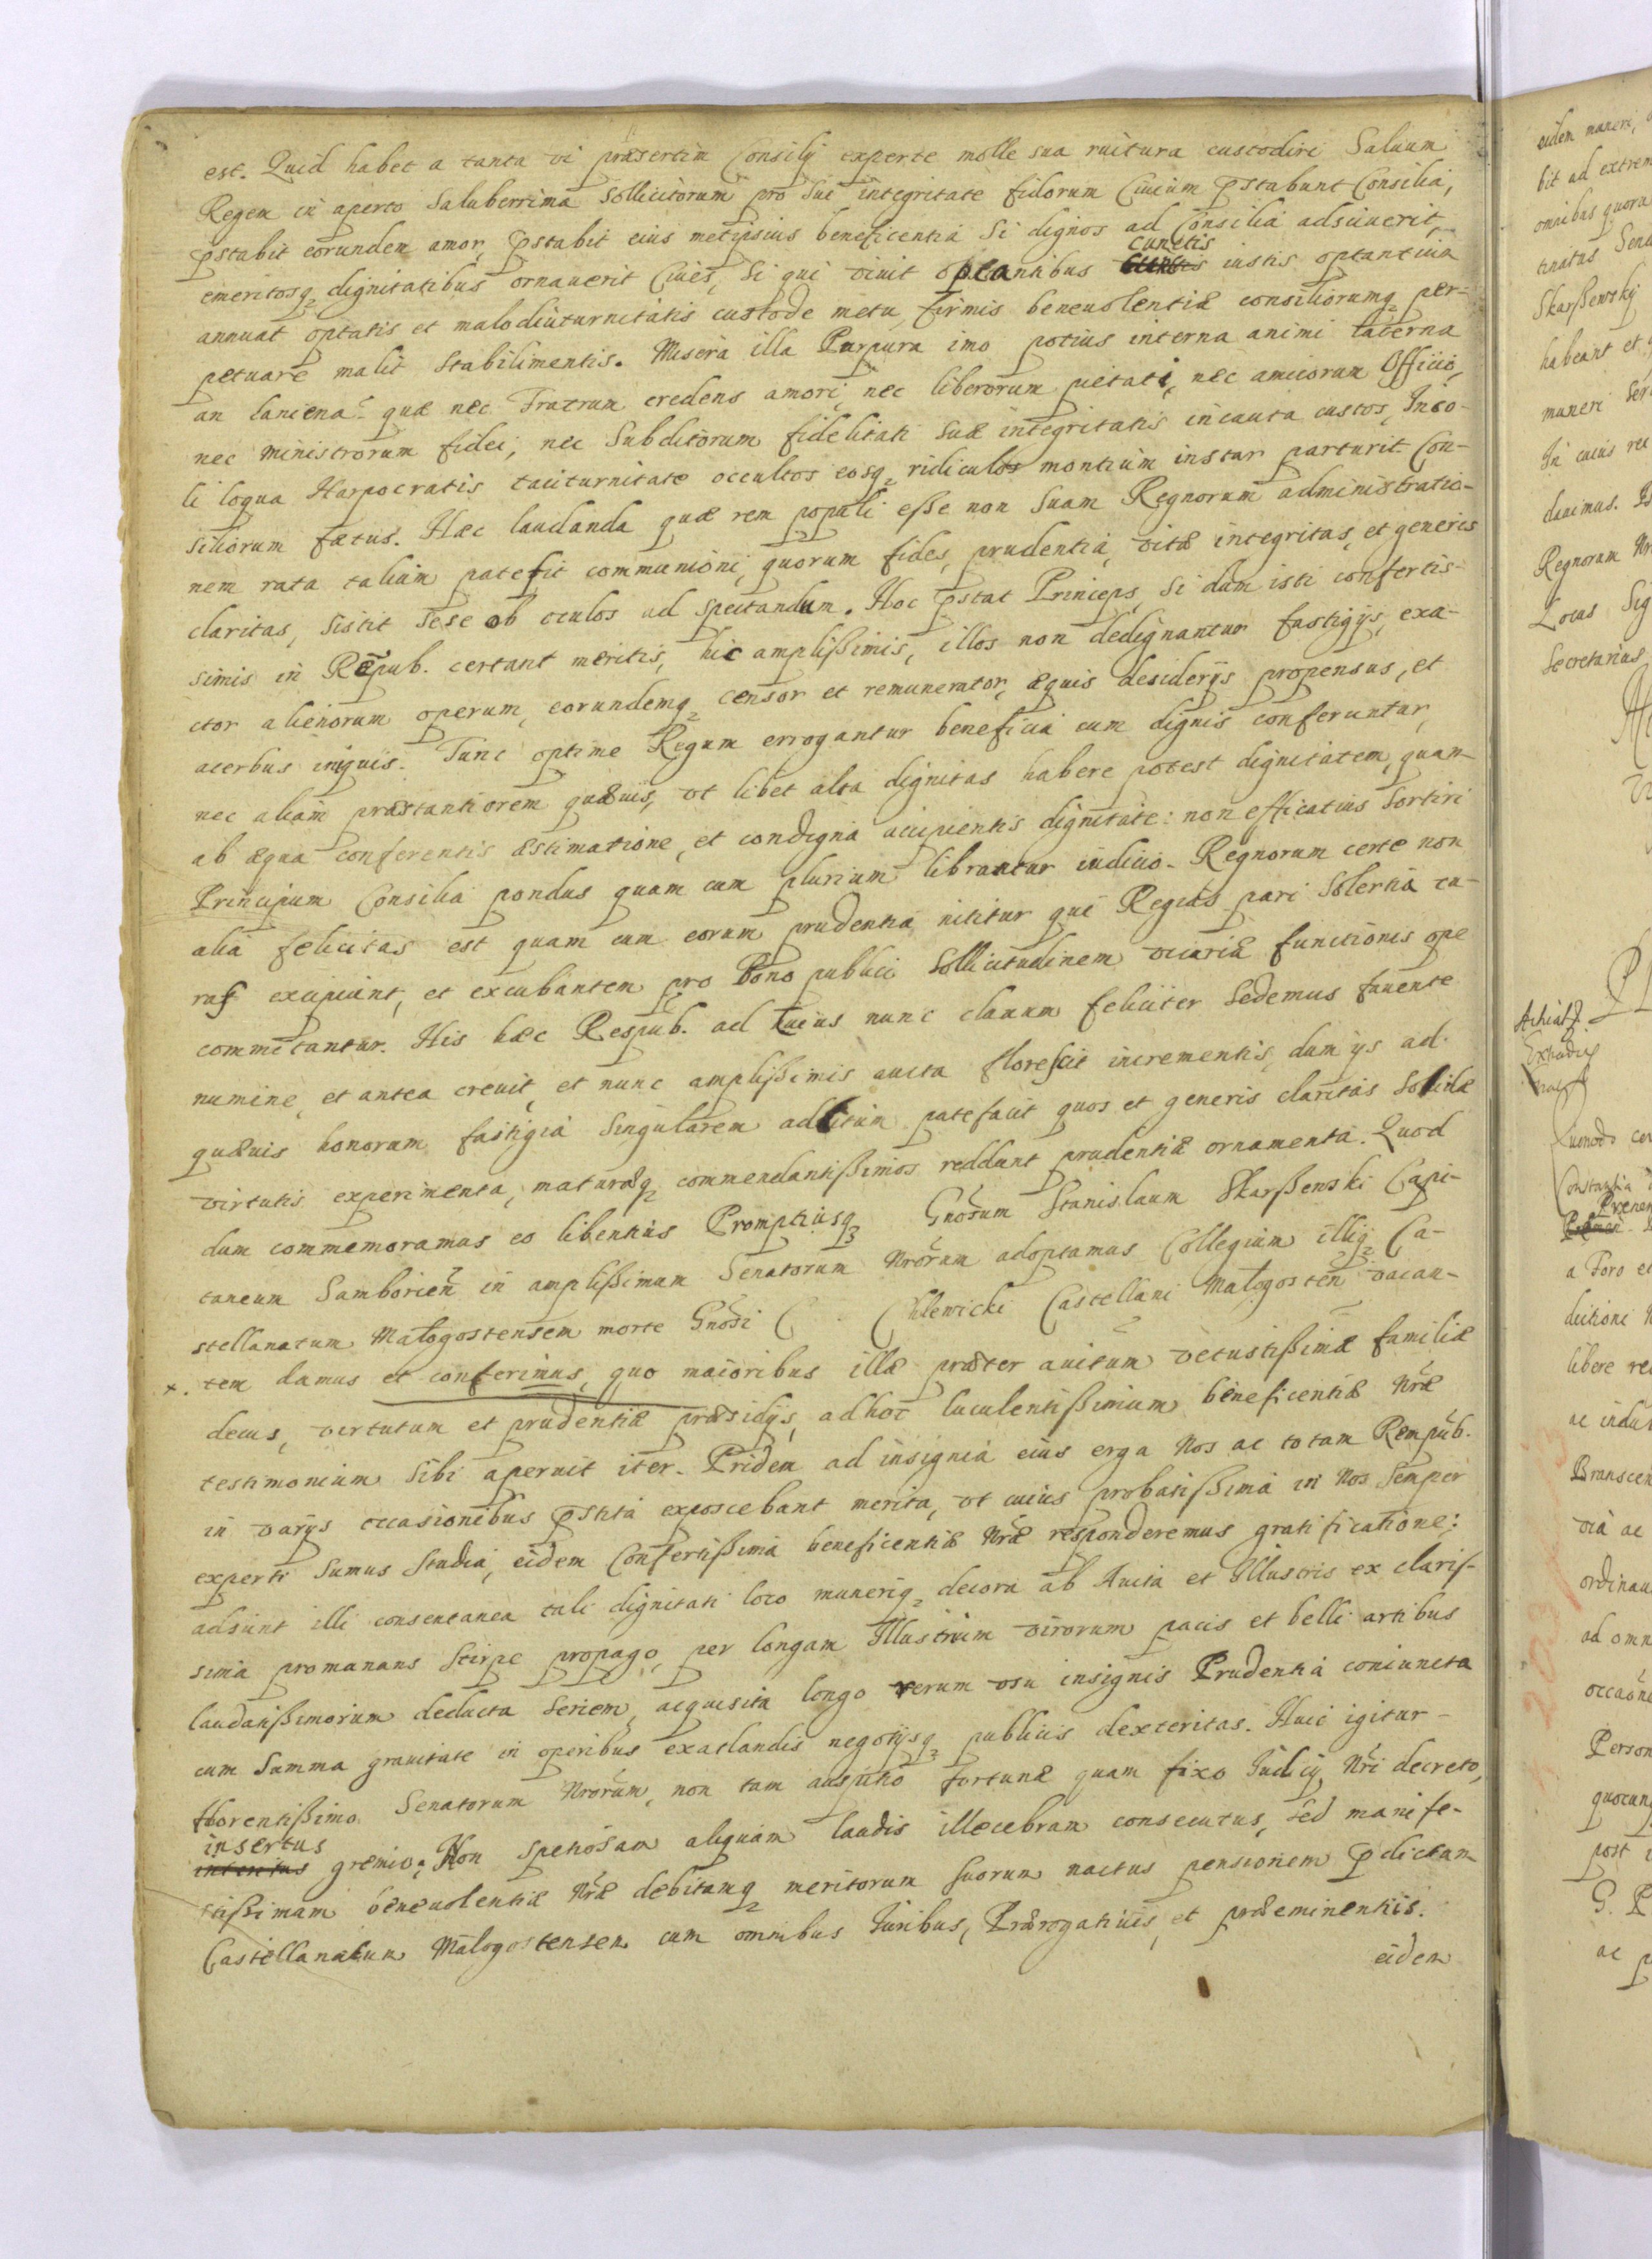 est. Quid habet a tanta vi præsertim Consilij experte molle sua ruitura custodiri Saluum
Regem in aperto Saluberrima Sollicitorum pro sui integritate fidorum Ciuium pstabunt Consilia,
pstabit eorundem amor, pstabit eius metipsius beneficentia Si dignos ad Consilia adsciuerit,
emeritosq dignitatibus ornauerit Ciues, Si qui viuit optantibus cunctis iustis optantium
annuat optatis et malo diuturnitatis custode metu, firmis beneuolentiæ consiliorumq per-
petuare malit Stabilimentis. Misera illa Purpura imo potius interna animi taberna
an laniena quæ nec Fratrum credens amori, nec liberorum pietati, nec amicorum Officio,
nec Ministrorum fidei, nec Subditorum fidelitati Suæ integritatis incauta custos, Inso-
li loqua Harpocratis taciturnitate occultos eosq ridiculos montium instar parturit Con-
siliorum fætus. Hæc laudanda quæ rem populi esse non Suam Regnorum administratio-
nem rata talium patefit communioni, quorum fides, prudentia, vitæ integritas, et generis
claritas, Sistit Sese ob oculos ad Spectandum. Hoc pstat Princeps, Si dum isti confertis-
simis in Repub. certant meritis, hic amplissimis, illos non dedignantur fastigijs, exa-
ctor alienorum operum, eorundemq censor et remunerator, æquis desiderijs propensus, et
acerbus iniquis. Tunc optime Regum errogantur beneficia cum dignis conferuntur,
nec aliam præstantiorem quæuis, vt libet alta dignitas habere potest dignitatem, quam
ab æqua conferentis æstimatione, et condigna accipientis dignitate: non efficatius Sortiri
Principum Consilia pondus quam cum plurium librantur iudicio. Regnorum certe non
alia felicitas est quam cum eorum prudentia nititur qui Regias pari Solertia cu-
ras excipiunt, et excubantem pro Bono publico Sollicitudinem vicariæ functionis ope
commitantur. His hæc Respub. ad Cuius nunc clauum feliciter Sedemus fauente
numine, et antea creuit, et nunc amplissimis aucta florescit incrementis, dum ijs ad
quæuis honorum fastigia Singularem additum patefacit quos et generis claritas Solidæ
virtutis experimenta, maturæq commendantissimos reddunt prudentiæ ornamenta. Quod
dum commemoramus eo libentius Promptiusq Gnosum Stanislaum Skarßewski Capi-
taneum Samborien in amplissimum Senatorum Nrorum adoptamus Collegium illiq Ca-
stellanatum Małogostensem morte Gnosi C Chlewicki Castellani Małogosten vacan-
x. tem damus et conferimus, quo maioribus illæ præter auitum vetustissimæ familiæ
decus, virtutum et prudentiæ præsidijs, ad hoc luculentissimum beneficentiæ Nræ
testimonium Sibi aperuit iter. Pridem ad insignia eius erga Nos ac totam Rempub.
in varijs occasionibus pstita exposcebant merita, vt cuius probatissima in Nos Semper
experti Sumus Studia, eidem Confertissima beneficentiæ Nræ responderemus gratificatione:
adsunt illi consentanea tali dignitati loco munerìq decora ab Aucta et Illustris ex claris-
sima promanans Stirpe propago, per longam Illustrium virorum pacis et belli artibus
laudatissimorum deducta Seriem, acquisita longo rerum vsu insignis Prudentia coniuncta
cum Summa grauitate in operibus exatlandis negotijsq publicis dexteritas. Huic igitur
florentissimo Senatorum Nrorum, non tam auspitio fortunæ quam fixo Iudicij Nri decreto,
insertus gremio: Non Spetiosam aliquam laudis illecebram consecutus, Sed manife-
stissimam beneuolentiæ Nræ debitamq meritorum Suorum nactus pensionem pdictam
Castellanatum Małogostensem cum omnibus Iuribus, Prærogatiuis, et præeminentiis.
eidem